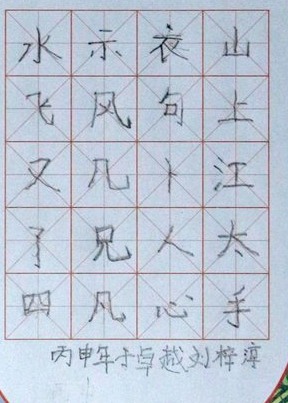 水示衣山
飞风句上
又几卜江
了兄人太
四凡心手
丙申年于卓越刘梓淳